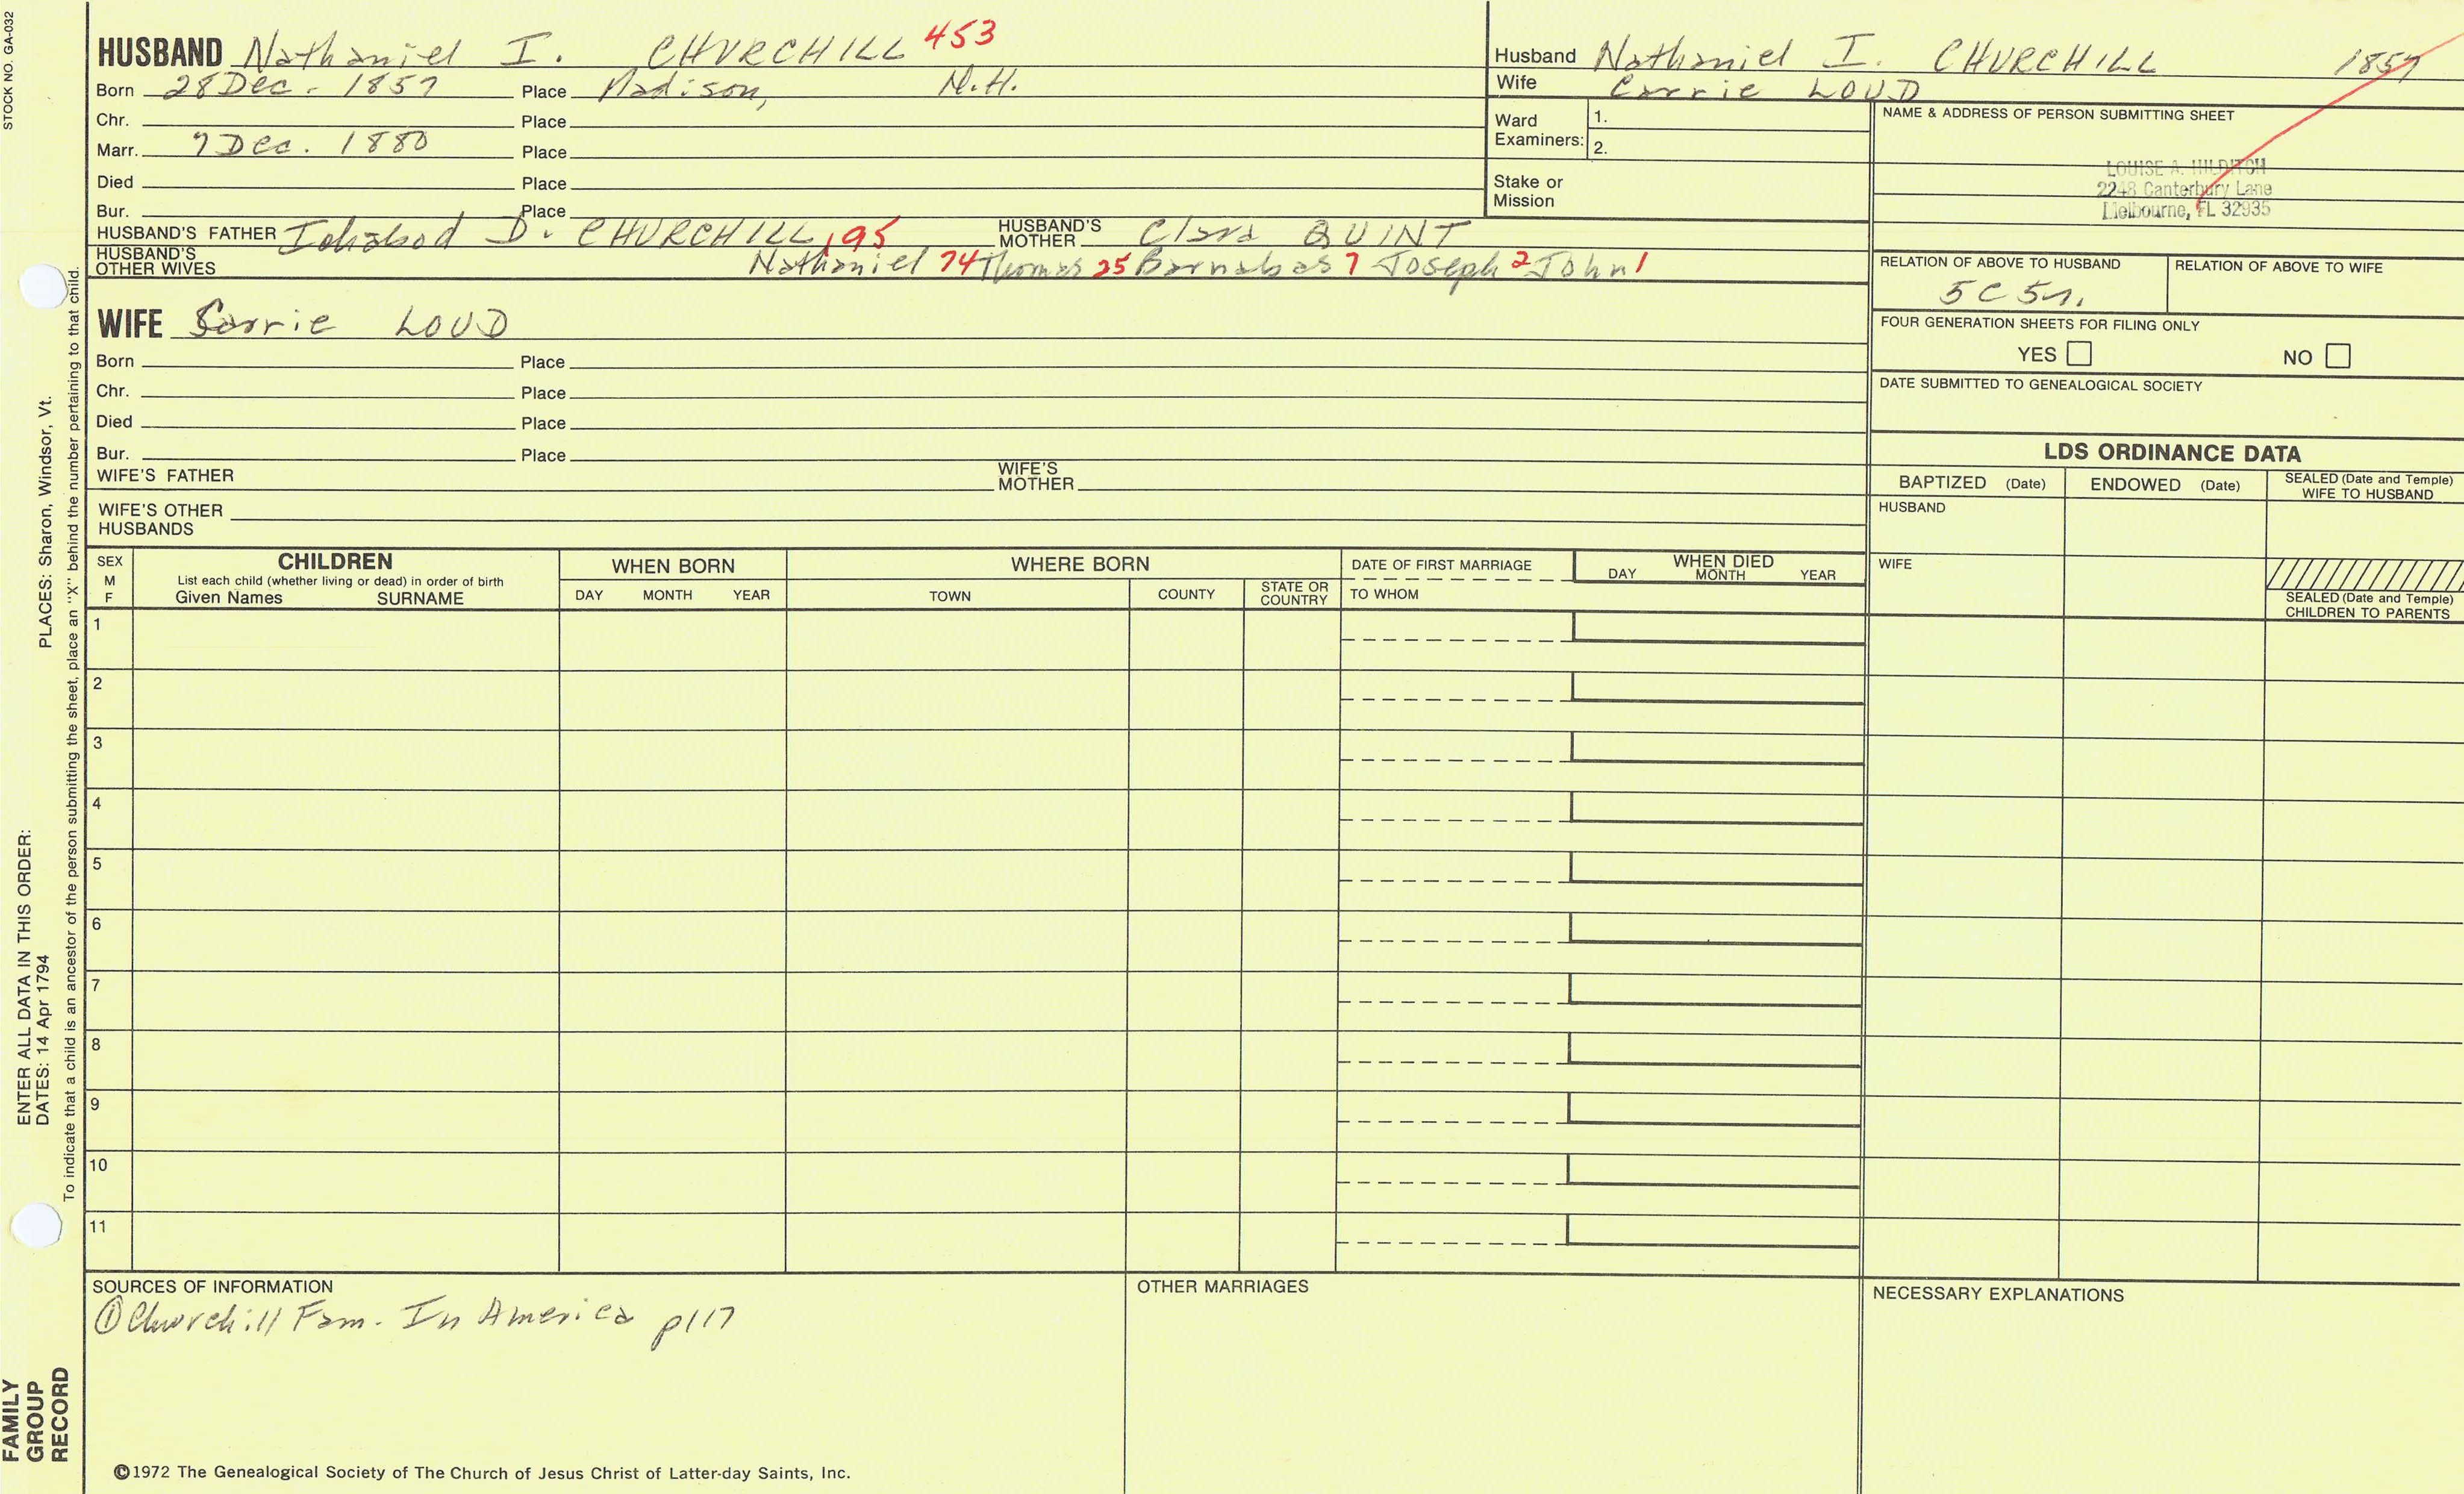 STOCK NO. GA-032
HUSBAND Nathaniel I. CHURCHILL 453
Born 28 Dec. 1857 Place Madison, N.H.
Chr. Place
Marr. 7 Dec. 1880 Place
Died Place
Bur. Place
HUSBAND'S FATHER Ichabod D. CHURCHILL 195 HUSBAND'S MOTHER Clara QUINT
HUSBAND'S OTHER WIVES Nathaniel 74 Thomas 25 Barnabas 7 Joseph 2 John 1
WIFE Carrie LOUD
Born Place
Chr. Place
Died Place
Bur. Place
WIFE'S FATHER WIFE'S MOTHER
WIFE'S OTHER HUSBANDS
Husband Nathaniel I. CHURCHILL 1857
Wife Carrie LOUD
Ward Examiners: 1.
2.
Stake or Mission
NAME & ADDRESS OF PERSON SUBMITTING SHEET
LOUISE A. HILDITCH
2248 Canterbury Lane
Melbourne, FL 32935
RELATION OF ABOVE TO HUSBAND RELATION OF ABOVE TO WIFE
5C 5r.
FOUR GENERATION SHEETS FOR FILING ONLY
YES NO
DATE SUBMITTED TO GENEALOGICAL SOCIETY
LDS ORDINANCE DATA
BAPTIZED (Date) ENDOWED (Date) SEALED (Date and Temple) WIFE TO HUSBAND
HUSBAND
WIFE
SEALED (Date and Temple) CHILDREN TO PARENTS
SEX M F
CHILDREN
List each child (whether living or dead) in order of birth
Given Names SURNAME
WHEN BORN
DAY MONTH YEAR
WHERE BORN
TOWN COUNTY STATE OR COUNTRY
DATE OF FIRST MARRIAGE
TO WHOM
WHEN DIED
DAY MONTH YEAR
1
2
3
4
5
6
7
8
9
10
11
SOURCES OF INFORMATION
① Churchill Fam. In America p117
OTHER MARRIAGES
NECESSARY EXPLANATIONS
©1972 The Genealogical Society of The Church of Jesus Christ of Latter-day Saints, Inc.
FAMILY GROUP RECORD
ENTER ALL DATA IN THIS ORDER:
DATES: 14 Apr 1794 PLACES: Sharon, Windsor, Vt.
To indicate that a child is an ancestor of the person submitting the sheet, place an "X" behind the number pertaining to that child.